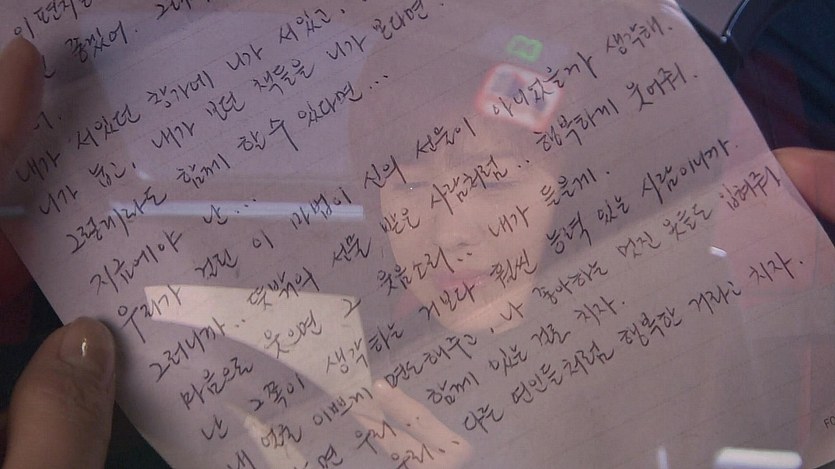 이 편지를
좋겠어.
내가 서있던 창가에 니가 서있고,
니가 눕고, 내가 보던 책들을 니가 본다면.
그렇게라도 함께 할 수 있다면...
지금에야 난...
우리가 걸린 이 마법이 신의 선물이 아니었을까 생각해.
그러니까.. 뜻밖의 선물 받은 사람처럼.. 행복하게 웃어줘.
마음으로 웃으면 그 웃음소리.. 내가 들을게.
난 그쪽이 생각하는 거보다 훨씬 능력 있는 사람이니까.
내 얼굴 이쁘게 면도해주고, 나 좋아하는 멋진 옷들도 입혀줘
면 우리.. 함께 있는 걸로 치자.
우리.. 다른 연인들처럼 행복한 거라고 치자.